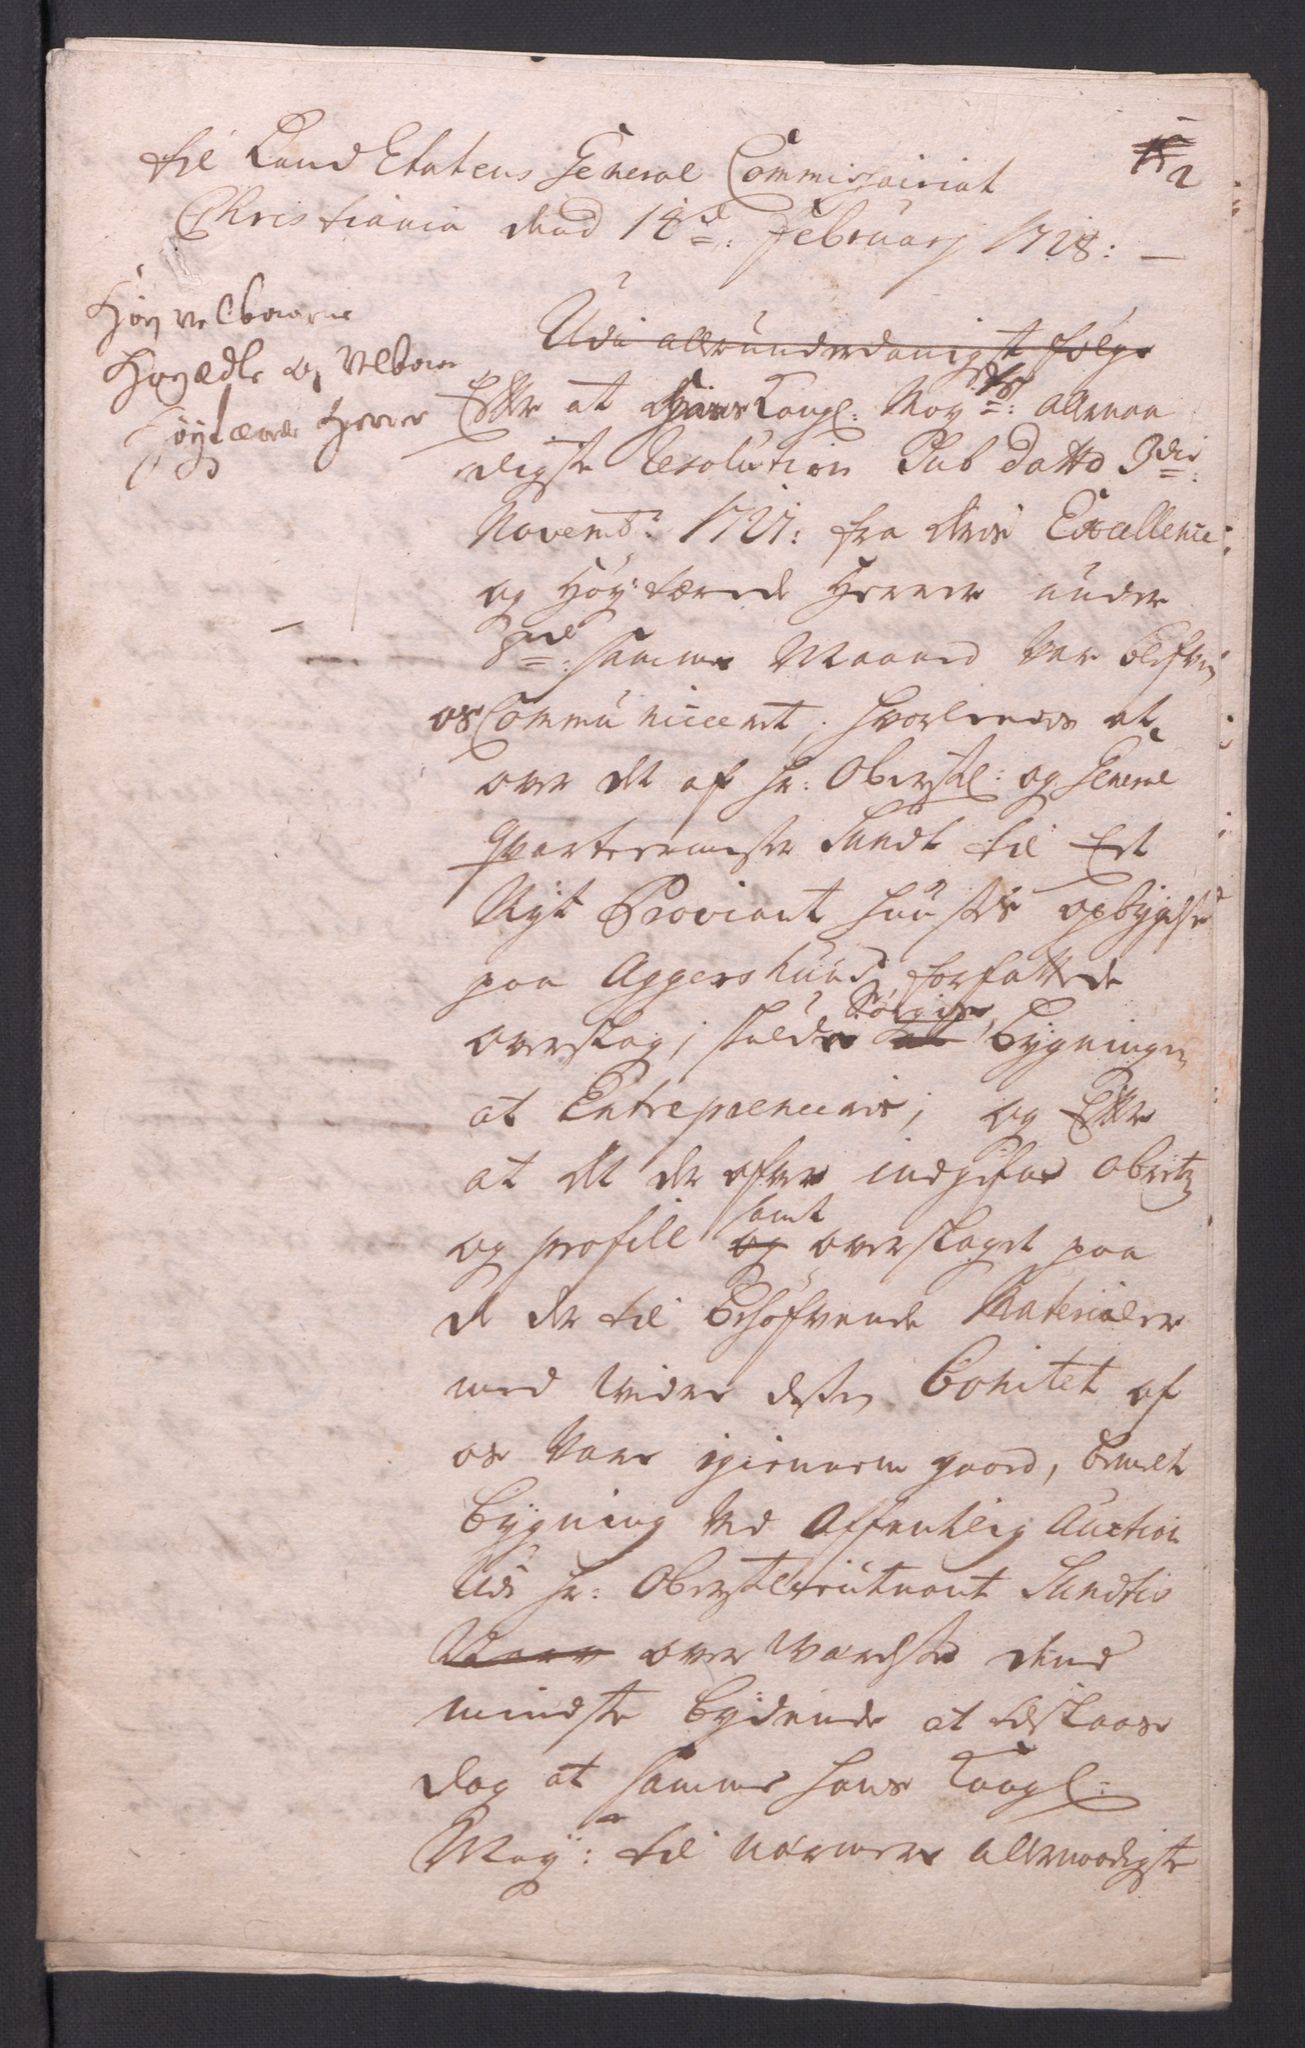 til Land Etatens General Commissairiat
Christiania dend 14d: February 1728: —
2
Høy velbaarne
Høyædle og Velbaarne
Høytærede Herrer
Udi allerunderdanigst følge
Efter at Hans Kongl: May:ts allernaa
digste Resolution Sub Datto 3die
Novembr: 1727: fra deris Excellence
og Høy tærede Herrer under
8de: samme Maaned var blefven
os Communiceret, hvorledes at
over det af Hr: Oberstl: og General
Qvarteermester Sundt til Et
Nyt Proviant Huusses opbygelse
paa Aggershuus, forfattede
overslag, skulde Bygningen
at Entreprenneris; og Efter
at det der ofver indgifne Obritz
og profill samt og overslaget paa
de der til Behøfvende Materialer
med videre dessen Bonitet af
os vare igiennem gaaed, bemelte
Bygning ved Offentlig Auction
Udi Hr: Oberstleiutnant Sundtis
over værelse dend
mindste bydende at tilslaaes
dog at samme Hans Kongl:
May: til nærmere allernaadigste